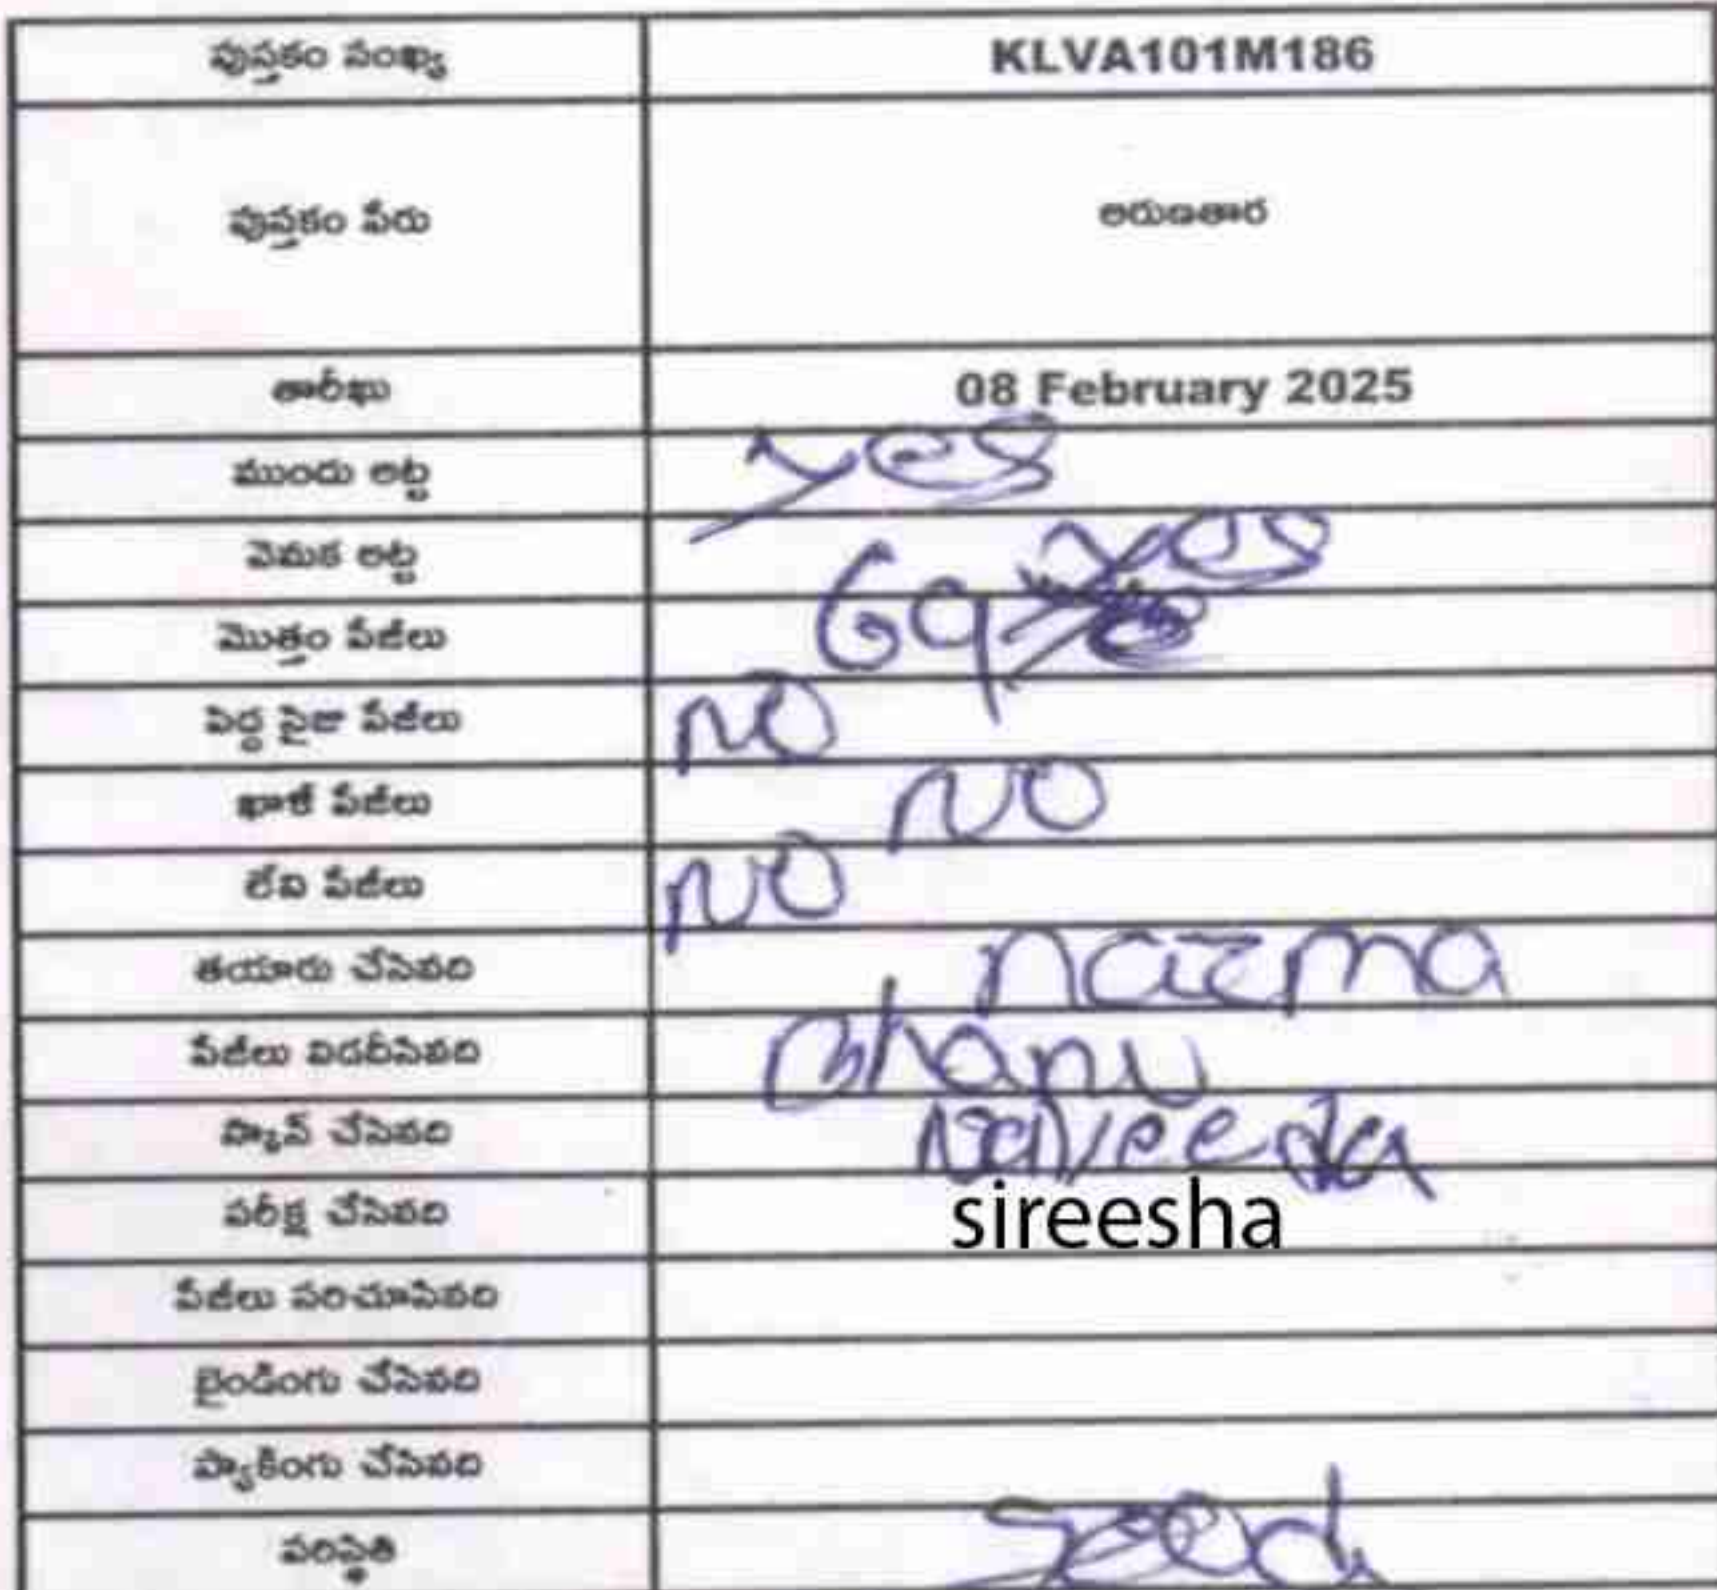 పుస్తకం సంఖ్య KLVA101M186
పుస్తకం పేరు అరుణతార
తారీఖు 08 February 2025
ముందు అట్ట yes
వెనుక అట్ట yes
మొత్తం పేజీలు 69
పెద్ద సైజు పేజీలు NO
ఖాళీ పేజీలు NO
లేని పేజీలు NO
తయారు చేసినది nazma
పేజీలు విడదీసినది Bhanu
స్కాన్ చేసినది Naveeda
పరీక్ష చేసినది sireesha
పేజీలు సరిచూసినది
బైండింగు చేసినది
ప్యాకింగు చేసినది
పరిస్థితి